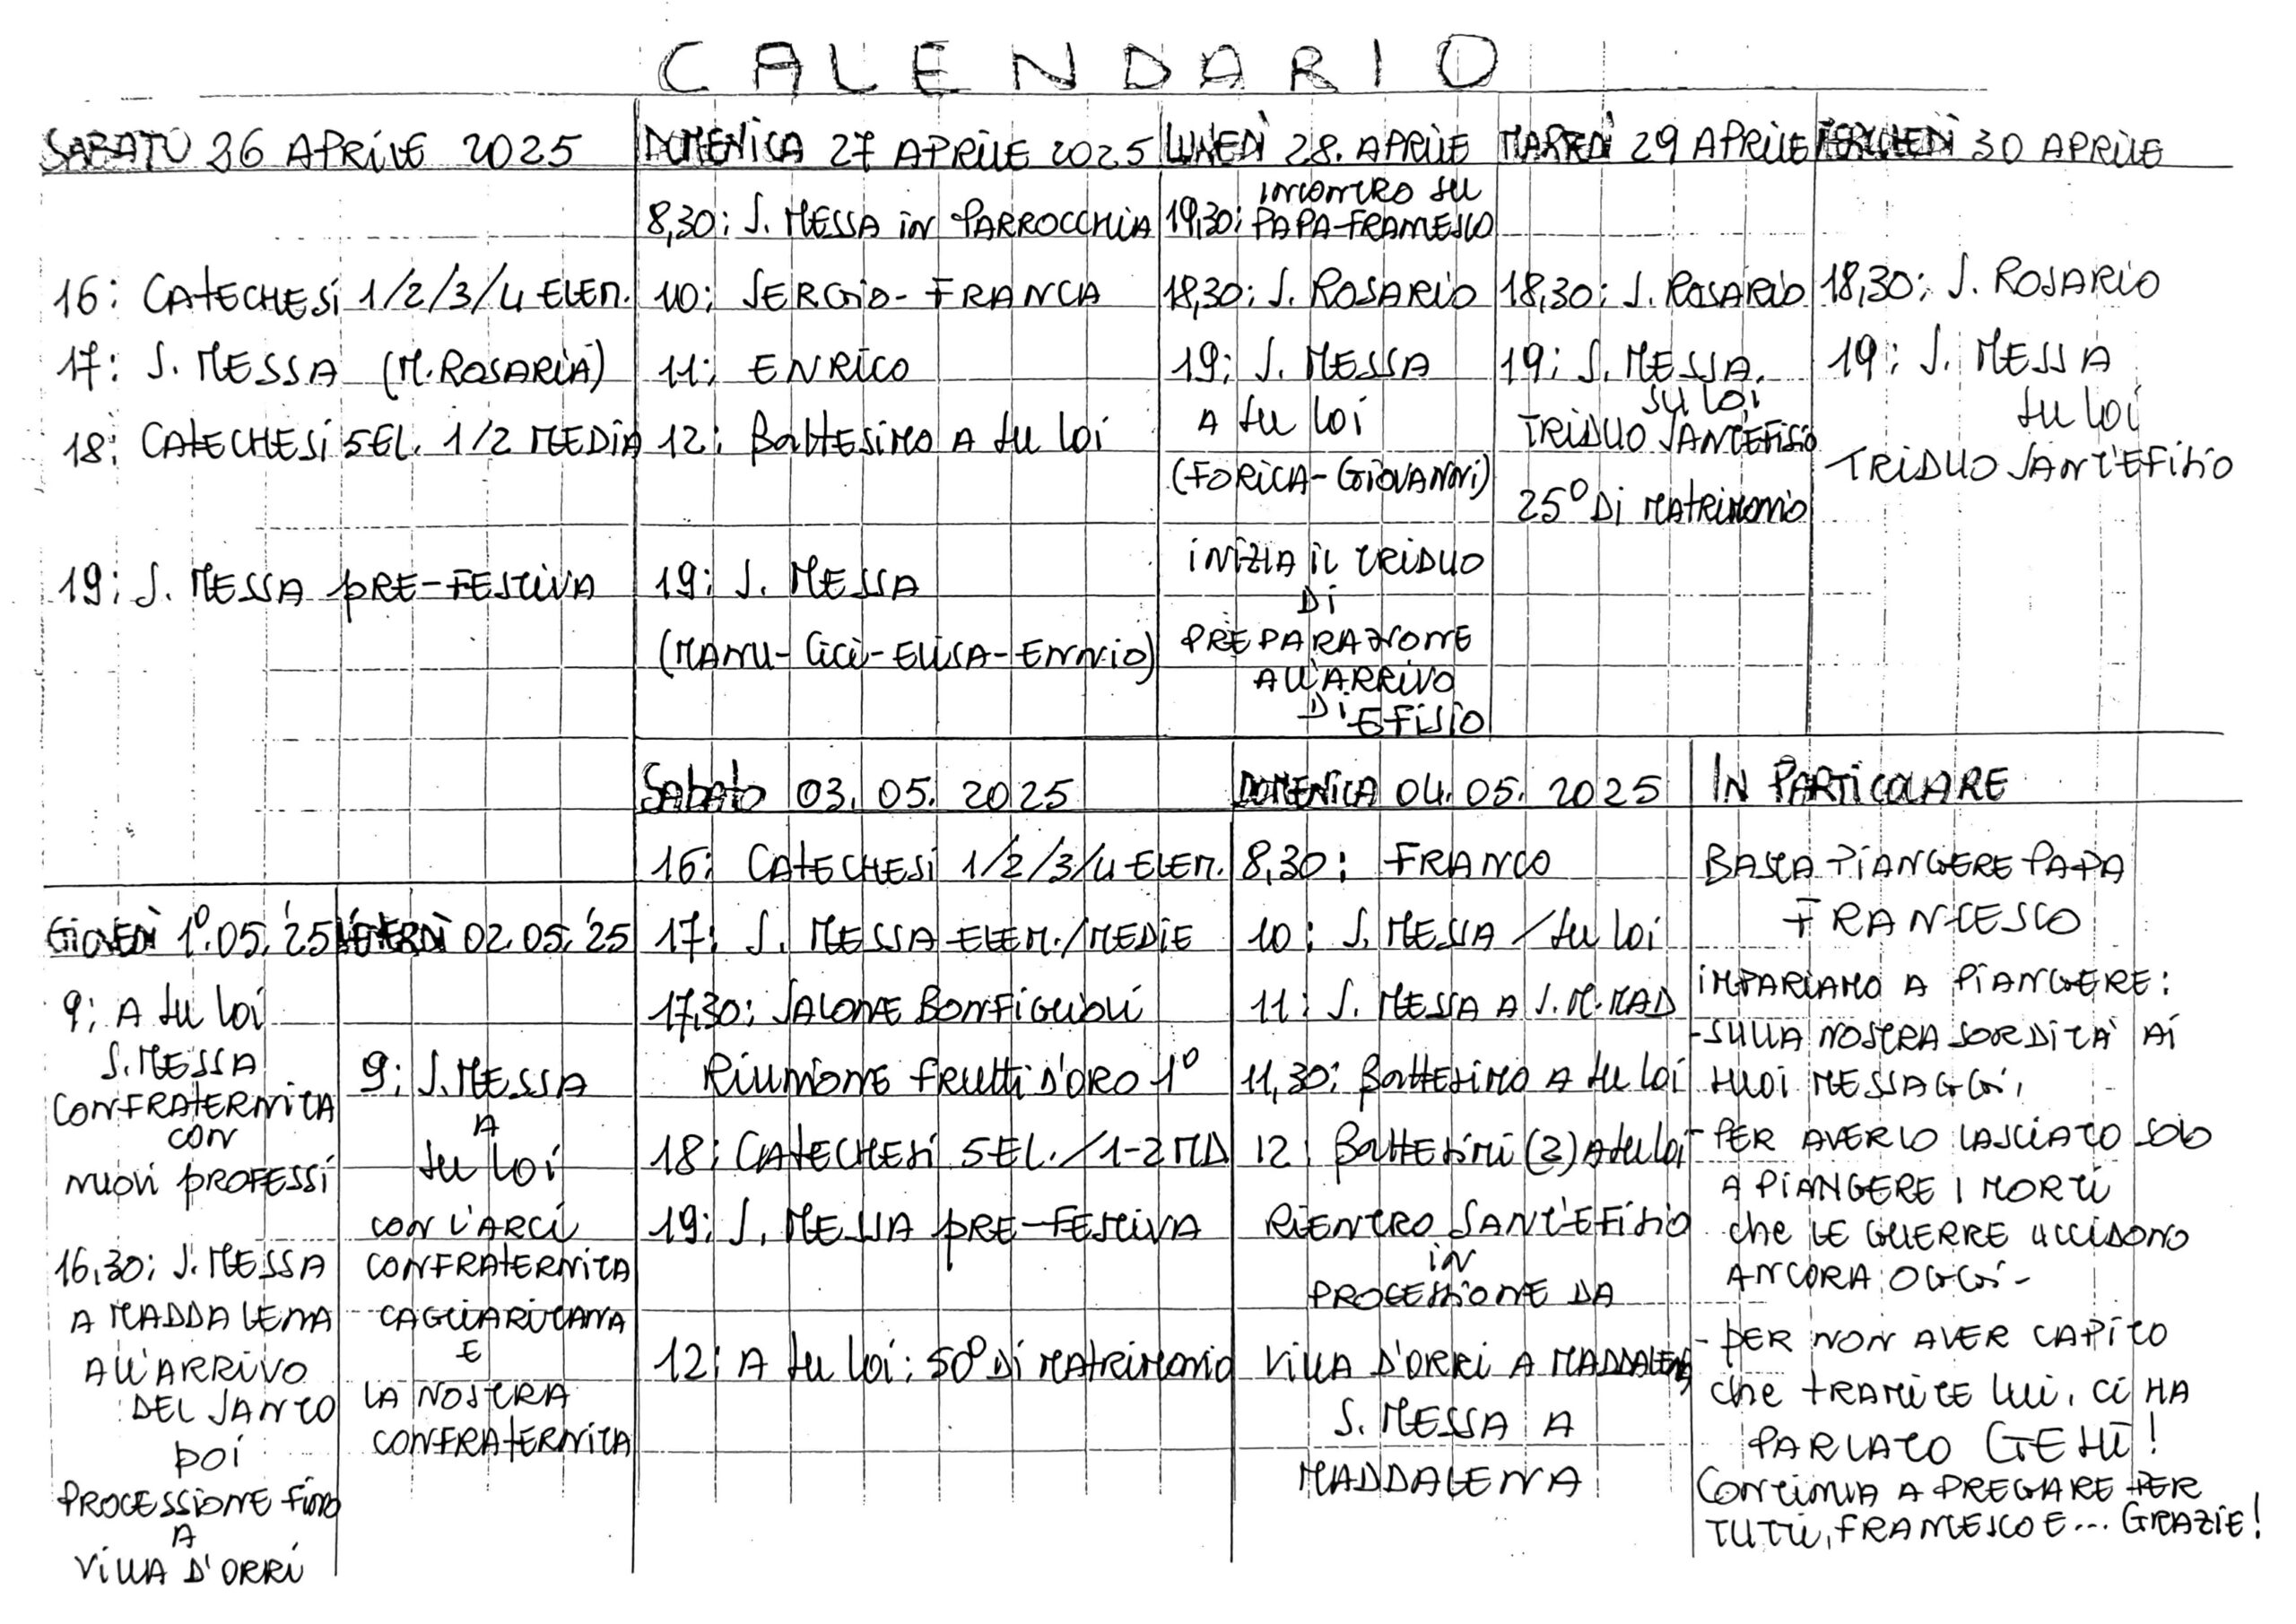 CALENDARIO
SABATO 26 APRILE 2025
16: CATECHESI 1/2/3/4 ELEM.
17: S. MESSA (M. ROSARIA)
18: CATECHESI 5 EL. 1/2 MEDIA
19: S. MESSA PRE-FESTIVA
DOMENICA 27 APRILE 2025
8,30: S. MESSA IN PARROCCHIA
10: SERGIO - FRANCA
11: ENRICO
12: BATTESIMO A SU LOI
19: S. MESSA
(MANU - CICI - ELISA - ENNIO)
LUNEDÌ 28. APRILE
INCONTRO SU
19,30: PAPA FRANCESCO
18,30: S. ROSARIO
19: S. MESSA
A SU LOI
(FORICA - GIOVANNI)
INIZIA IL TRIDUO
DI
PREPARAZIONE
ALL'ARRIVO
DI EFISIO
MARTEDÌ 29 APRILE
18,30: S. ROSARIO
19: S. MESSA.
SU LOI
TRIDUO SANT'EFISIO
25° DI MATRIMONIO
MERCOLEDÌ 30 APRILE
18,30: S. ROSARIO
19: S. MESSA
SU LOI
TRIDUO SANT'EFISIO
GIOVEDÌ 1°.05.'25
9: A SU LOI
S. MESSA
CONFRATERNITA
CON
NUOVI PROFESSI
16,30: S. MESSA
A MADDALENA
ALL'ARRIVO
DEL SANTO
POI
PROCESSIONE FINO
A
VILLA D'ORRI
VENERDÌ 02.05.'25
9: S. MESSA
A
SU LOI
CON L'ARCI
CONFRATERNITA
CAGLIARITANA
E
LA NOSTRA
CONFRATERNITA
SABATO 03.05.2025
16: CATECHESI 1/2/3/4 ELEM.
17: S. MESSA ELEM./MEDIE
17,30: SALONE BONFIGLIOLI
RIUNIONE FRUTTI D'ORO 1°
18: CATECHESI 5 EL./1-2 MD
19: S. MESSA PRE-FESTIVA
12: A SU LOI: 50° DI MATRIMONIO
DOMENICA 04.05.2025
8,30: FRANCO
10: S. MESSA / SU LOI
11: S. MESSA A S.M. MAD
11,30: BATTESIMO A SU LOI
12: BATTESIMI (2) A SU LOI
RIENTRO SANT'EFISIO
IN
PROCESSIONE DA
VILLA D'ORRI A MADDALENA
S. MESSA A
MADDALENA
IN PARTICOLARE
BASTA PIANGERE PAPA
FRANCESCO
IMPARIAMO A PIANGERE:
- SULLA NOSTRA SORDITÀ AI
SUOI MESSAGGI,
- PER AVERLO LASCIATO SOLO
A PIANGERE I MORTI
CHE LE GUERRE UCCIDONO
ANCORA OGGI -
- PER NON AVER CAPITO
CHE TRAMITE LUI, CI HA
PARLATO GESÙ!
CONTINUA A PREGARE PER
TUTTI, FRANCESCO E... GRAZIE!